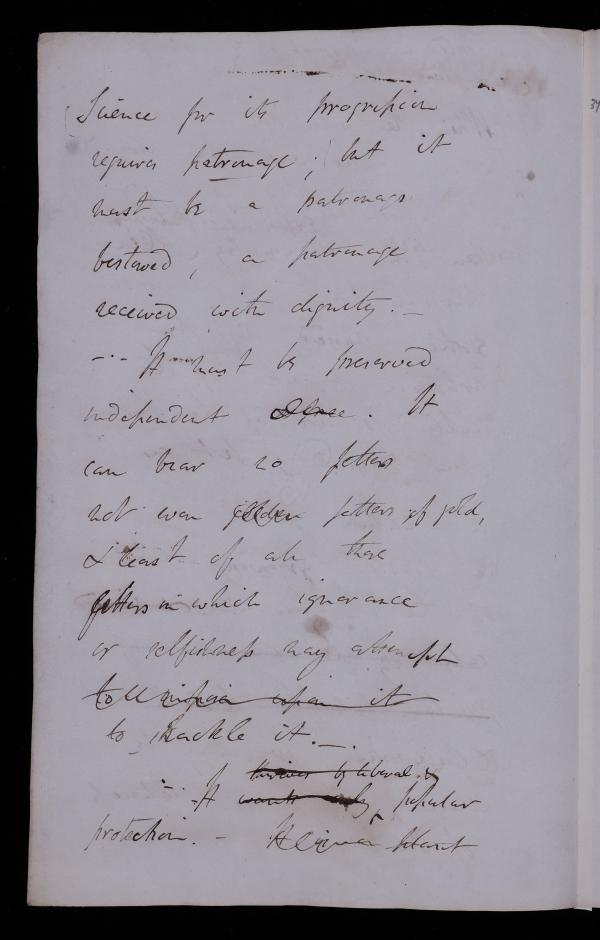 Science for its progression
requires patronage; but it
must be a patronage
bestowed, a patronage
received with dignity. —
—·- It must be preserved
independent . It
can bear no fetters
not even fetters of gold,
& least of all those
fetters in which ignorance
or selfishness may attempt
to upon it
to shackle it. —.—
thrives by liberal &
-·- It wants only popular
protection. - It is a plant